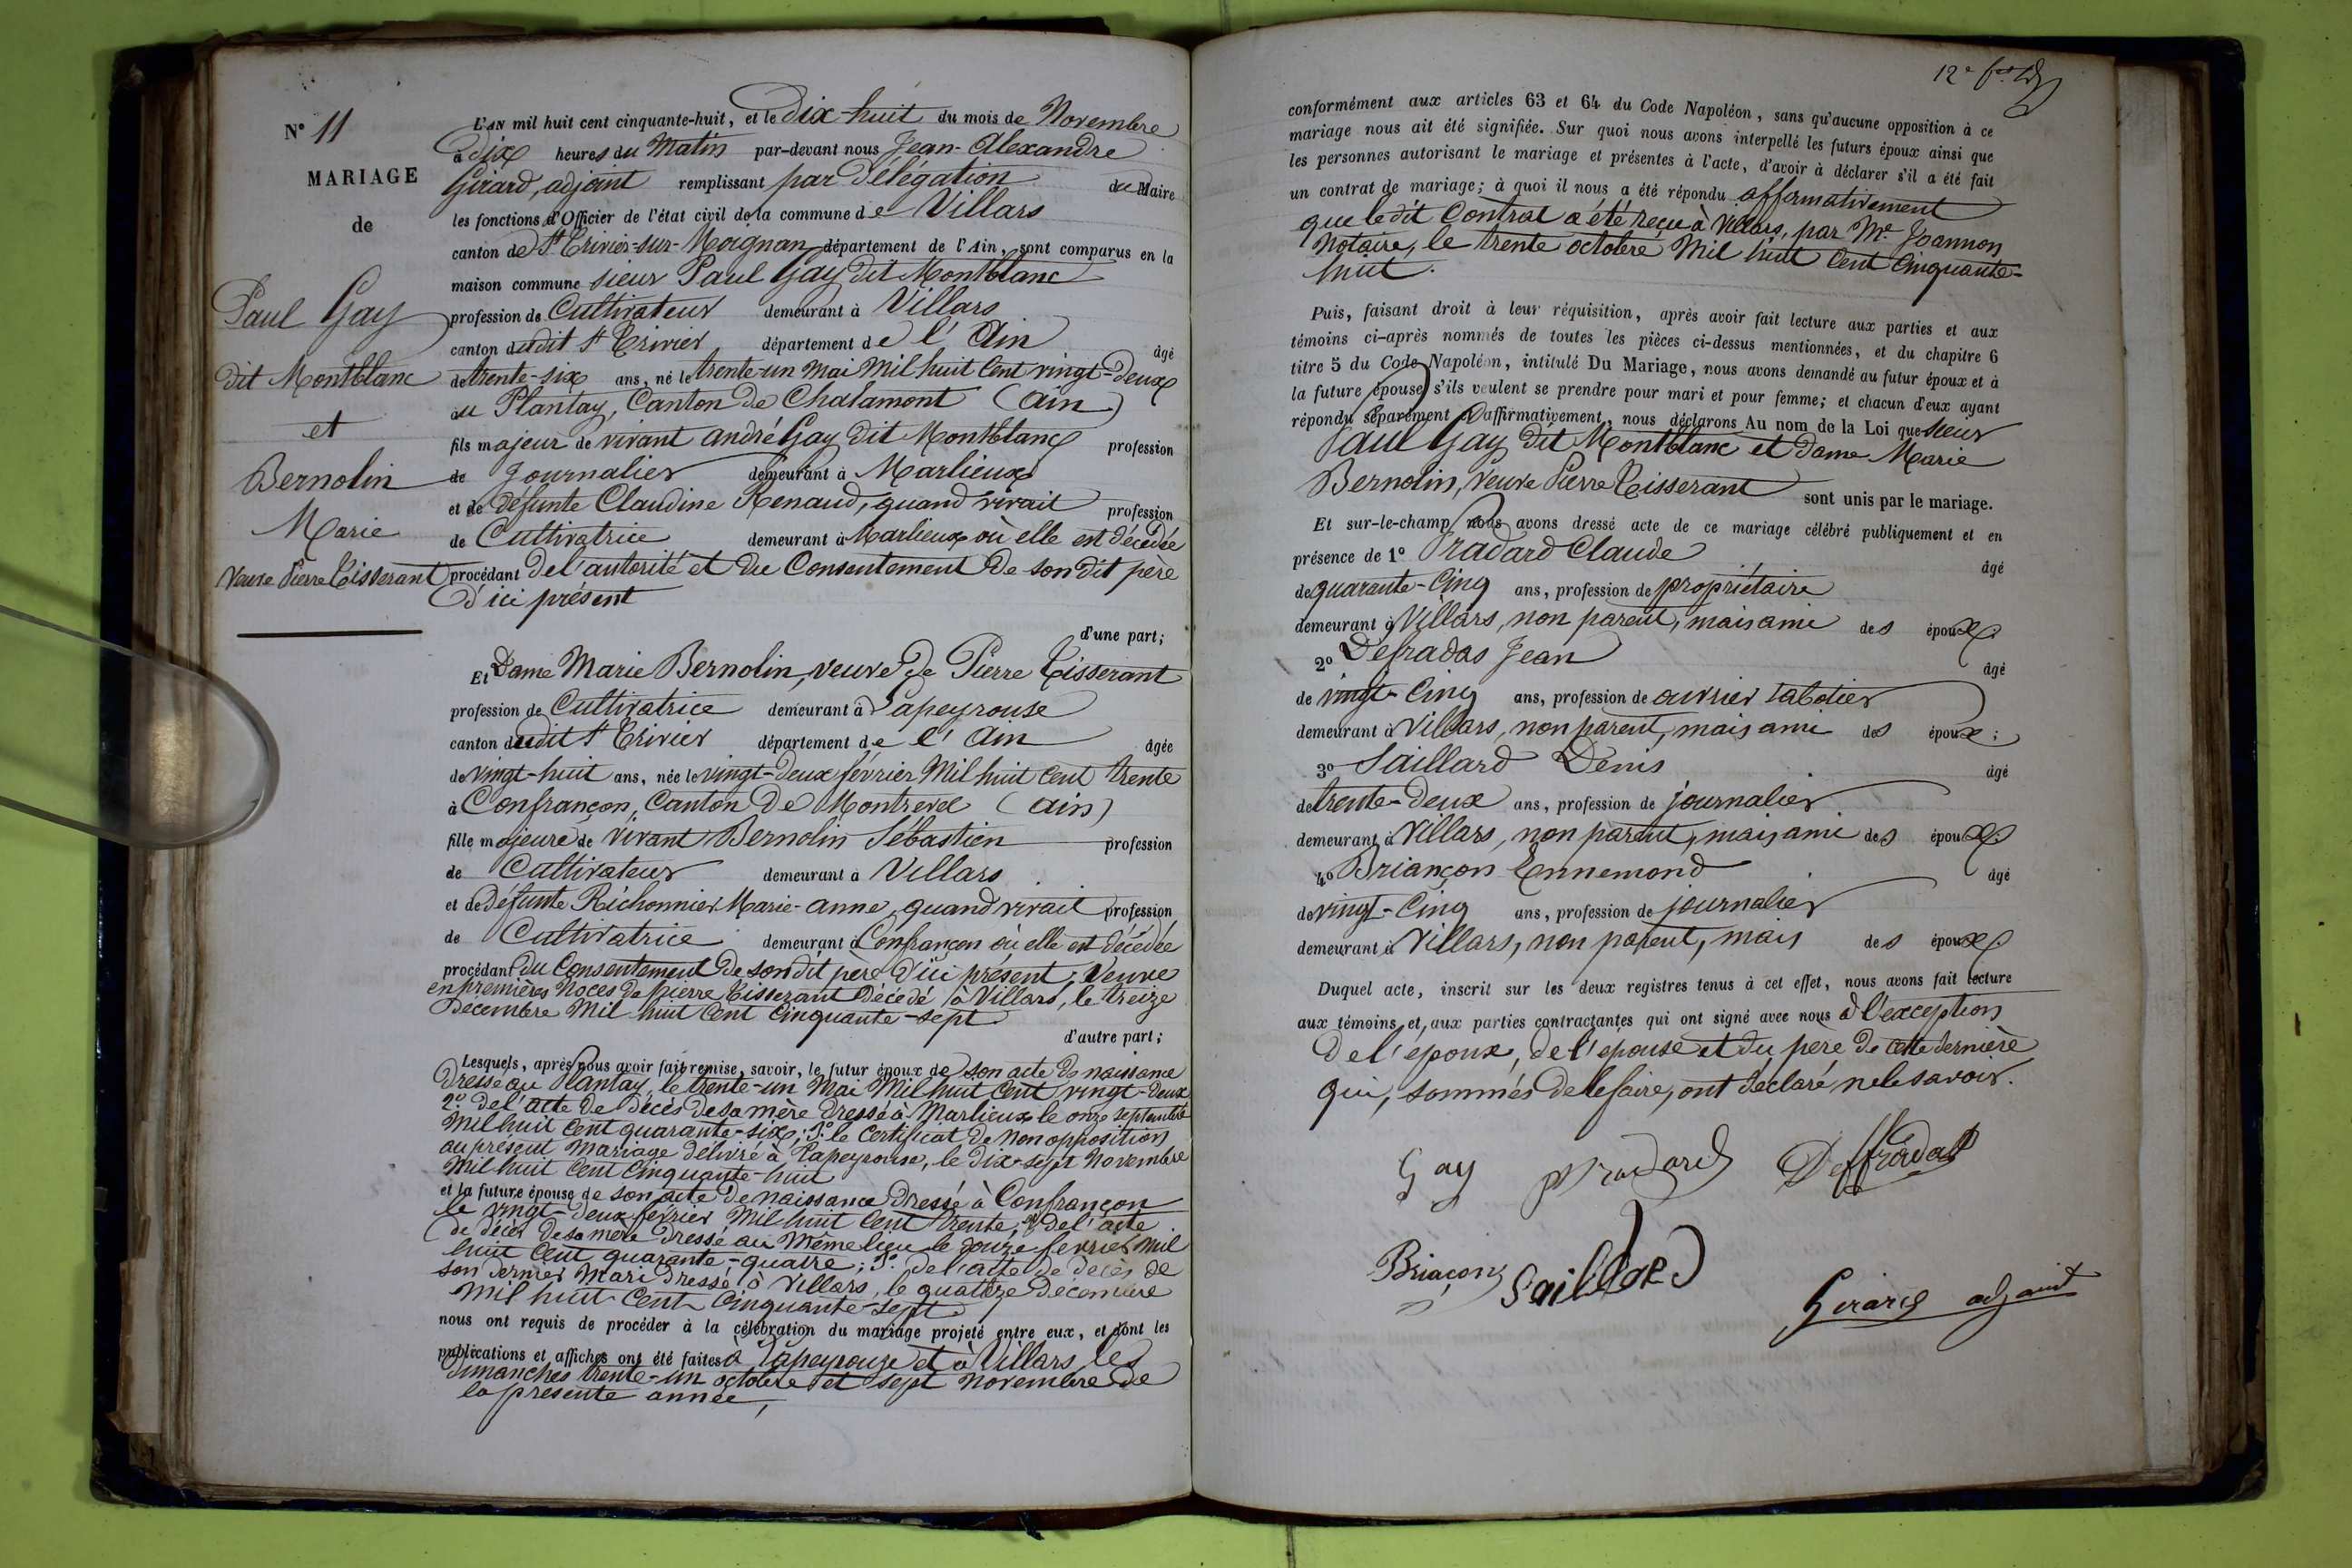 N° 11
MARIAGE
de
Paul Gay
dit Montblanc
et
Bernolin
Marie
Veuve Pierre Tisserant
L'AN mil huit cent cinquante-huit, et le Dix-huit du mois de Novembre
à Dix heures du Matin par-devant nous Jean-Alexandre
Girard, adjoint remplissant par Délégation du Maire
les fonctions d'Officier de l'état civil de la commune de Villars
canton de St Trivier-sur-Moignan, département de l'Ain, sont comparus en la
maison commune sieur Paul Gay dit Montblanc
profession de Cultivateur demeurant à Villars
canton dudit St Trivier département de l'Ain âgé
de trente-six ans, né le trente-un Mai Mil huit Cent vingt-Deux
au Plantay, Canton de Chalamont (Ain)
fils majeur de vivant André Gay dit Montblanc profession
de Journalier demeurant à Marlieux
et de défunte Claudine Renaud, quand vivait profession
de Cultivatrice demeurant à Marlieux où elle est décédée
procédant De l'autorité et Du Consentement De son dit père
D'ici présent
d'une part;
Et Dame Marie Bernolin, veuve de Pierre Tisserant
profession de Cultivatrice demeurant à Lapeyrouse
canton dudit St Trivier département de l'Ain âgée
de vingt-huit ans, née le vingt-Deux février Mil huit Cent trente
à Confrançon, Canton De Montrevel (Ain)
fille majeure de vivant Bernolin Sébastien profession
de Cultivateur demeurant à Villars
et de défunte Richonnier Marie-Anne, quand vivait profession
de Cultivatrice demeurant à Confrançon où elle est décédée
procédant Du Consentement De son dit père D'ici présent; Veuve
en premières Noces De Pierre Tisserant Décédé à Villars, le treize
Décembre Mil huit Cent Cinquante-sept
d'autre part;
Lesquels, après nous avoir fait remise, savoir, le futur époux de son acte De naissance
Dressé au Plantay, le trente-un Mai Mil huit Cent vingt-Deux
2° de l'acte De Décès De sa mère Dressé à Marlieux le onze septembre
Mil huit Cent quarante-six; 3° le Certificat De Non opposition
au présent Mariage Délivré à Lapeyrouse, le Dix-sept Novembre
Mil huit Cent Cinquante-huit
et la future épouse de son acte De naissance Dressé à Confrançon
le vingt-Deux février Mil huit Cent trente; 2° de l'acte
De Décès De sa mère Dressé au Même lieu le Douze février Mil
huit Cent quarante-quatre; 3° De l'acte de Décès de
son Dernier Mari Dressé à Villars, le quatorze Décembre
Mil huit Cent Cinquante-sept
nous ont requis de procéder à la célébration du mariage projeté entre eux, et dont les
publications et affiches ont été faites à Lapeyrouse et à Villars, les
Dimanches trente-un octobre et sept Novembre De
la présente année,
conformément aux articles 63 et 64 du Code Napoléon, sans qu'aucune opposition à ce
mariage nous ait été signifiée. Sur quoi nous avons interpellé les futurs époux ainsi que
les personnes autorisant le mariage et présentes à l'acte, d'avoir à déclarer s'il a été fait
un contrat de mariage; à quoi il nous a été répondu affirmativement
que le dit Contrat a été reçu à Villars, par Me Joannon
Notaire, le trente octobre Mil huit Cent Cinquante-
huit.
Puis, faisant droit à leur réquisition, après avoir fait lecture aux parties et aux
témoins ci-après nommés de toutes les pièces ci-dessus mentionnées, et du chapitre 6
titre 5 du Code Napoléon, intitulé Du Mariage, nous avons demandé au futur époux et à
la future épouse s'ils veulent se prendre pour mari et pour femme; et chacun d'eux ayant
répondu séparément et affirmativement, nous déclarons Au nom de la Loi que sieur
Paul Gay dit Montblanc et Dame Marie
Bernolin, Veuve Pierre Tisserant sont unis par le mariage.
Et sur-le-champ nous avons dressé acte de ce mariage célébré publiquement et en
présence de 1° Pradard Claude âgé
de quarante-Cinq ans, profession de propriétaire
demeurant à Villars, non parent, mais ami des époux
2° Defradas Jean âgé
de vingt-Cinq ans, profession de ouvrier sabotier
demeurant à Villars, non parent, mais ami des époux;
3° Saillard Denis âgé
de trente-Deux ans, profession de journalier
demeurant à Villars, non parent, mais ami des époux
4° Briançon Ennemond âgé
de vingt-Cinq ans, profession de journalier
demeurant à Villars, non parent, mais des époux
Duquel acte, inscrit sur les deux registres tenus à cet effet, nous avons fait lecture
aux témoins et aux parties contractantes qui ont signé avec nous à l'exception
De l'époux, de l'épouse et Du père De cette dernière
qui, sommés De le faire, ont Déclaré ne le savoir.
Gay Pradard Deffradas
Briaçon Saillard
Girard adjoint